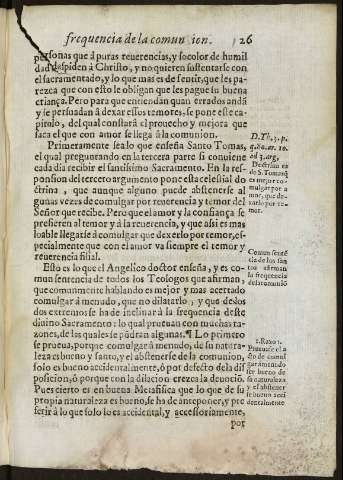 frequencia de la comunion. 26
personas que à puras reuerencias, y so color de humil
dad despiden à Christo, y no quieren sustentarse con
el sacramentado, y lo que mas es de sentir, que les pa-
rezca que con esto le obligan que les pague su buena
criança. Pero para que entiendan quan errados andā
y se persuadan à dexar essos temores, se pone este ca-
pitulo, del qual constarà el prouecho y mejora que
saca el que con amor se llega à la comunion.
Primeramente sea lo que enseña Santo Tomas,
el qual preguntando en la tercera parte si conuiene
cada dia recibir el santissimo Sacramento. En la res-
ponsion del tercero argumento pone esta celestial do
ctrina, que aunque alguno puede abstenerse al
gunas vezes de comulgar por reuerencia y temor del
Señor que recibe. Pero que el amor y la confiança se
prefieren al temor y à la reuerencia, y que assi es mas
loable llegarse à comulgar que dexarlo por temor, es-
pecialmente que con el amor va siempre el temor y
reuerencia filial.
Esto es lo que el Angelico doctor enseña, y es co-
mun sentencia de todos los Teologos que afirman
que comunmente hablando es mejor y mas acertado
comulgar à menudo, que no dilatarlo, y que de los
dos extremos se ha de inclinar à la frequencia deste
diuino Sacramento: lo qual prueuan con muchas ra-
zones, de las quales se pōdran algunas. ¶ Lo primero
se prueua, porque comulgar à menudo, de su natura-
leza es bueno y santo, y el abstenerse de la comunion,
solo es bueno accidentalmente, ò por defecto de la dis
posicion, ò porque con la dilacion crezca la deuociō.
Pues cierto es en buena Metafisica que lo que de su
propia naturaleza es bueno, se ha de anteponer, y pre
ferir à lo que solo lo es accidental, y accessoriamente,
por
D. Th. 3. p.
q. 80. ar. 10.
ad 3. arg.
Doctrina es
de S. Tomas q̄
es mejor co-
mulgar por a
mor, que de-
xarlo por te-
mor.
Comun sentē
cia de los san
tos afirman
la frequencia
de la comuniō
1. Razō
Prueuase el a
cto de comul
gar a menudo
ser bueno de
su naturaleza
y el abstener
se bueno acci
dentalmente